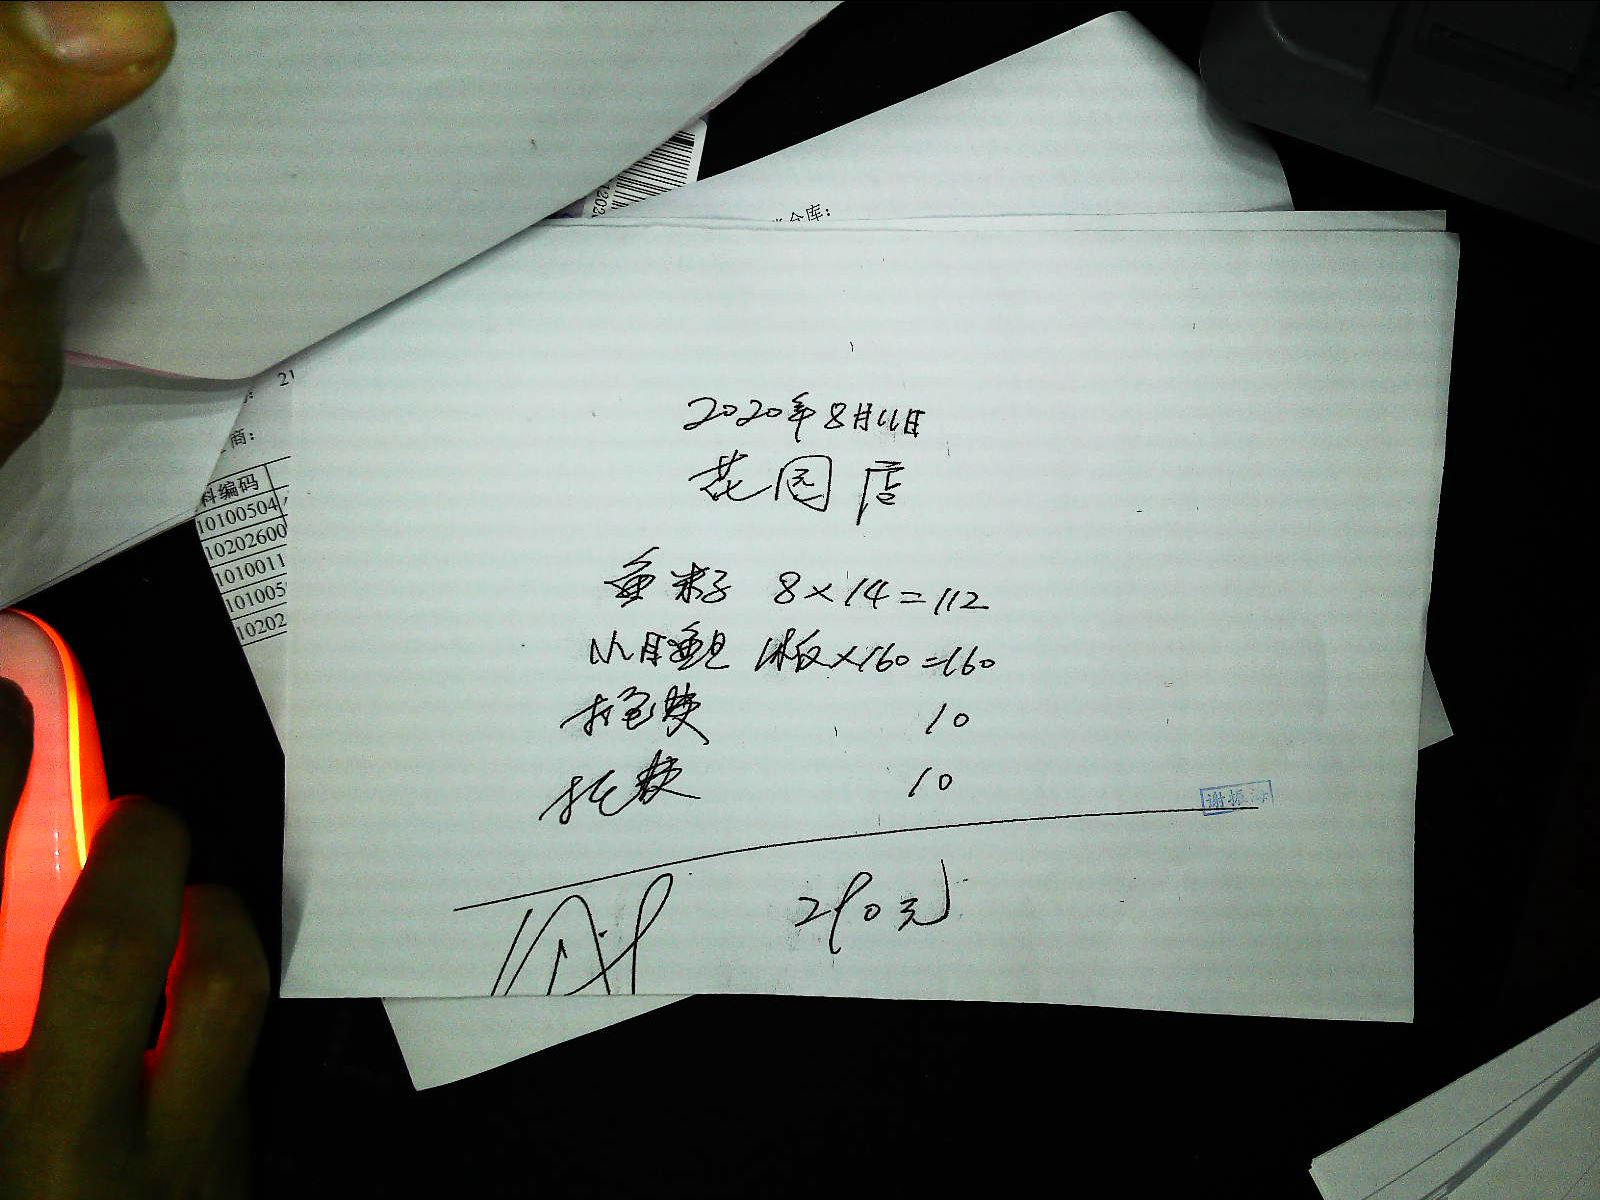 2020年8月11日
花园店
鱼籽 8×14=112
1板×160=160
打包费 10
托费 10
谢振海
290元
仓库:
商:
料编码
10100504
10202600
1010011
101005
10202